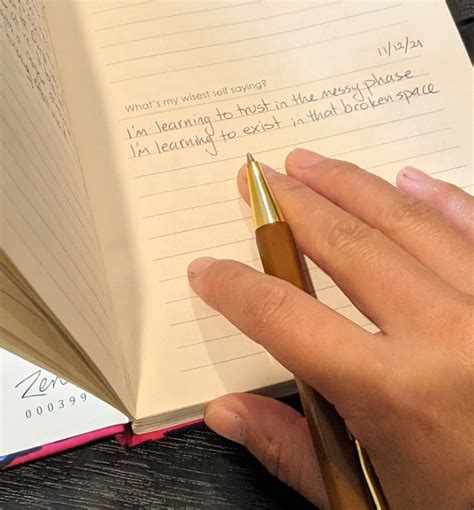 11/12/21
What's my wisest self saying?
I'm learning to trust in the messy phase
I'm learning to exist in that broken space
Zen
000399